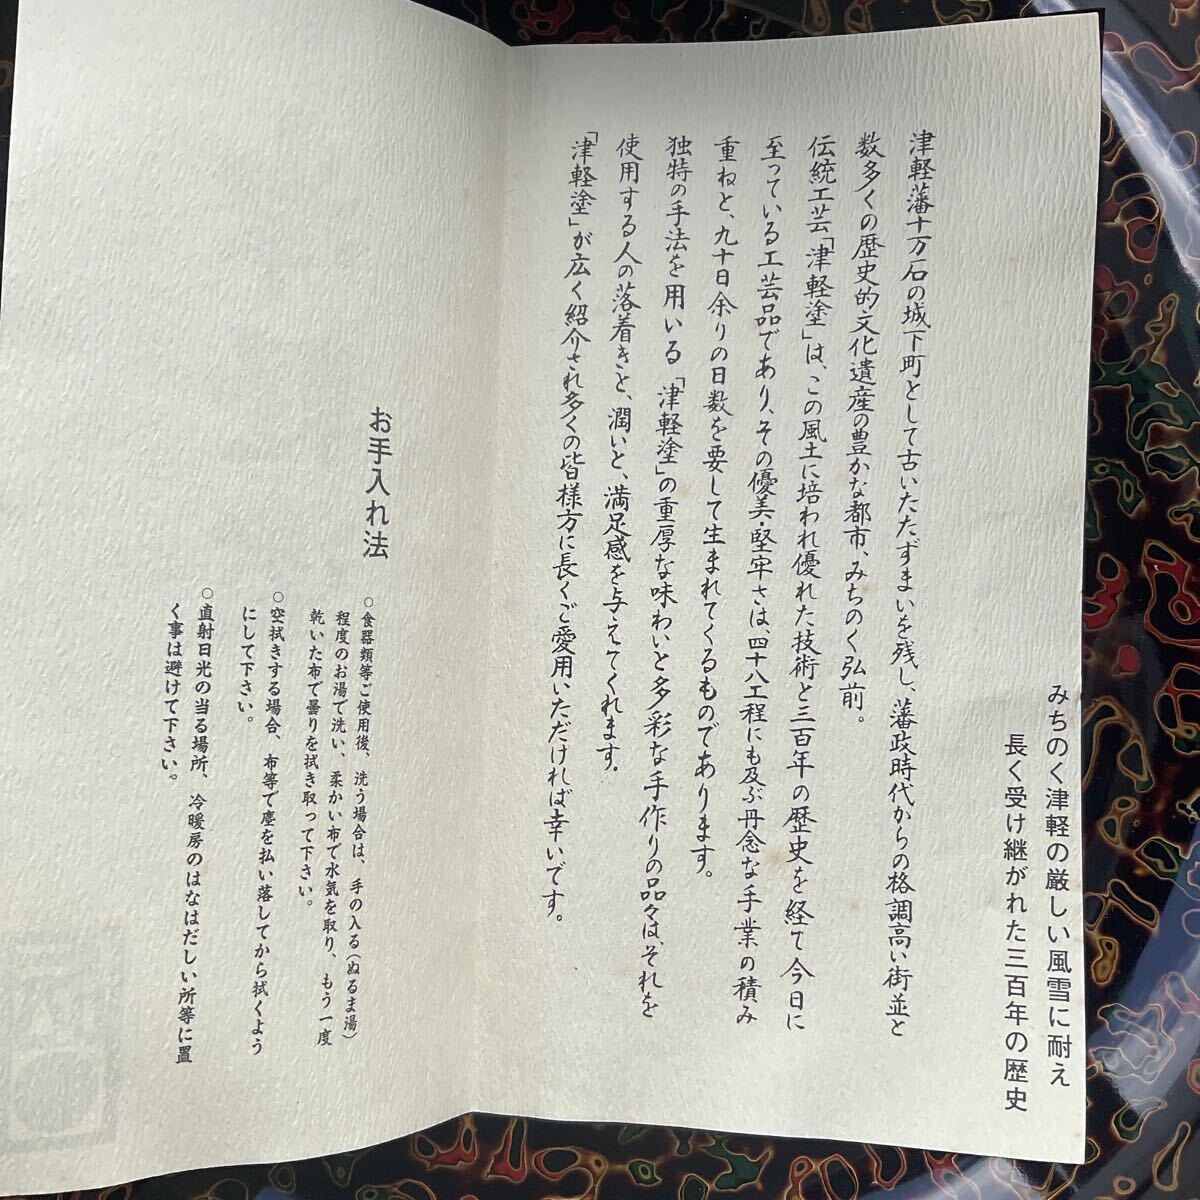 みちのく津軽の厳しい風雪に耐え
長く受け継がれた三百年の歴史
津軽藩十万石の城下町として古いたたずまいを残し、藩政時代からの格調高い街並と
数多くの歴史的文化遺産の豊かな都市、みちのく弘前。
伝統工芸「津軽塗」は、この風土に培われ優れた技術と三百年の歴史を経て今日に
至っている工芸品であり、その優美・堅牢さは、四十八工程にも及ぶ丹念な手業の積み
重ねと、九十日余りの日数を要して生まれてくるものであります。
独特の手法を用いる「津軽塗」の重厚な味わいと多彩な手作りの品々は、それを
使用する人の落着きと、潤いと、満足感を与えてくれます。
「津軽塗」が広く紹介され多くの皆様方に長くご愛用いただければ幸いです。
お手入れ法
○食器類等ご使用後、洗う場合は、手の入る(ぬるま湯)
程度のお湯で洗い、柔かい布で水気を取り、もう一度
乾いた布で曇りを拭き取って下さい。
○空拭きする場合、布等で塵を払い落してから拭くよう
にして下さい。
○直射日光の当る場所、冷暖房のはなはだしい所等に置
く事は避けて下さい。